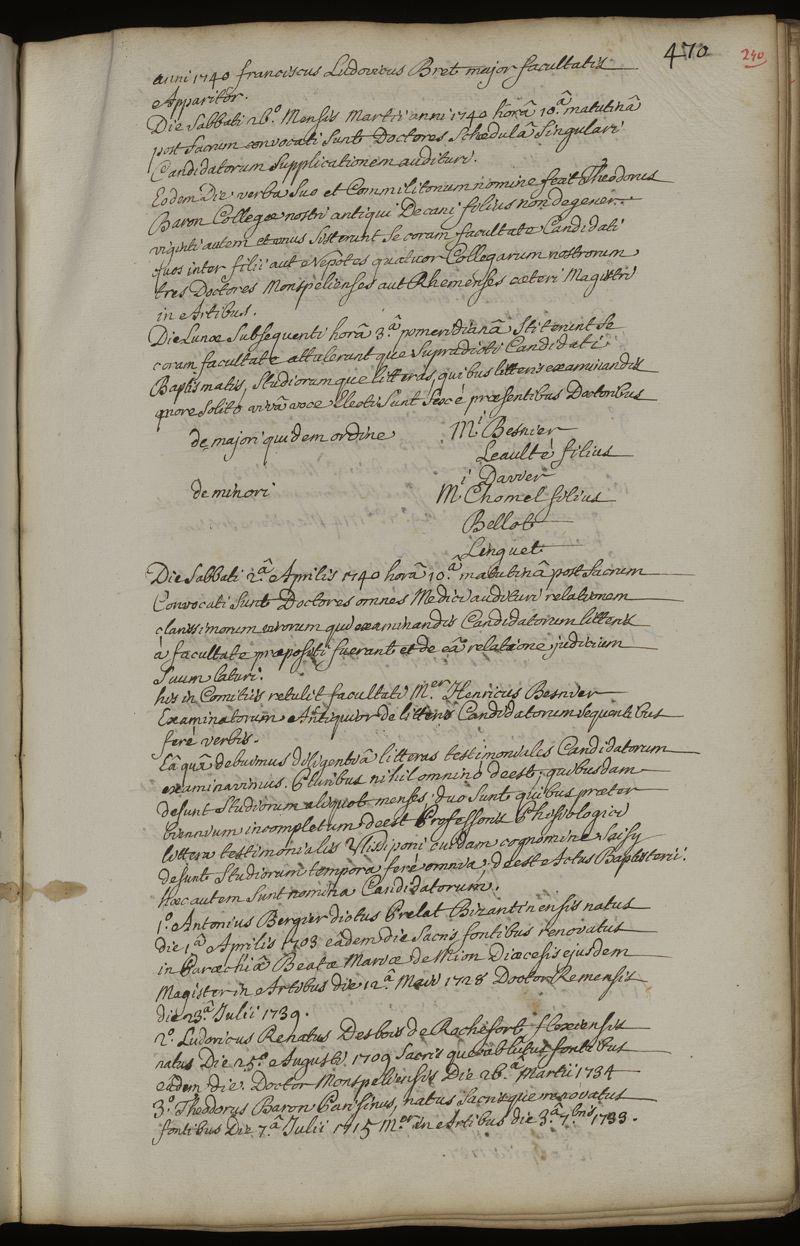 470
240
anni 1740 franciscus Ludovicus Bret major facultatis
Apparitor.
Die Sabbati 26.° Mensis Martii anni 1740 horâ 10.â matutinâ
post Sacrum convocati Sunt Doctores Schedulâ Singulari
Candidatorum Supplicationem audituri.
Eodem Die verba Suo et Commilitonum nomine fecit Theodorus
Baron Collegæ nostri antiqui Decani filius non degener.
viginti autem et unus Sisterunt Se coram facultate Candidati
quos inter filii aut Nepotes quatuor Collegarum nostrorum
tres Doctores Monspelienses aut Rhemenses cæteri Magistri
in Artibus.
Die Lunæ Subsequenti horâ 3.â pomeridianâ Stiterunt Se
coram facultate attulerunt que Supradicti Candidati
Baptismatis, Studiorumque litteras, quibus litteris examinandis
more Solito vivâ voce Electi Sunt Sex é præsentibus Doctoribus
de majori quidem ordine Mi Besnier
Leaulté filius
Davier
de minori Mi Chomel filius
Bellot
Linguet
Die Sabbati 2.â Aprilis 1740 horâ 10.â matutinâ post Sacrum
Convocati Sunt Doctores omnes Medici audituri relationem
clarissimorum virorum qui examinandis Candidatorum litteris
a facultate præpositi fuerant et de eâ relatione judicium
Suum laturi.
his in Comitiis retulit facultati Mer. Henricus Besnier
Examinatorum Antiquior de litteris Candidatorum Sequentibus
feré verbis.
Eâ quâ debuimus diligentiâ litteras testimoniales Candidatorum
examinavimus. Pluribus nihil omnino deest, quibusdam
desunt Studiorum aliquot menses, duo Sunt quibus præter
biennium incompletum deest Professoris Phisiologici
littera testimonialis Ulissiponi cuidam cognomine Seisy
desunt Studiorum tempora feré omnia, deest Actus Baptisterii.
hæc autem Sunt nomina Candidatorum.
1.° Antonius Bergier dictus Prelat Bizantinensis natus
die 1.â Aprilis 1703 eâdem die Sacris fontibus renovatus
in Paræchiâ Beatæ Mariæ de Mion Diæcesis ejusdem
Magister in Artibus die 12.â Maii 1728 Doctor Remensis
die 23.â Julii 1739.
2.° Ludovicus Renatus Desbois de Rochefort flexiensis
natus Die 25.â Augusti 1709 Sacris que ablutus fontibus
eâdem die. Doctor Monspeliensis Die 26.â Martii 1734
3.° Theodorus Baron Parisinus, natus Sacrisque renovatus
fontibus Die 7.â Julii 1715 Mer in Artibus die 3.â 7bris 1733.